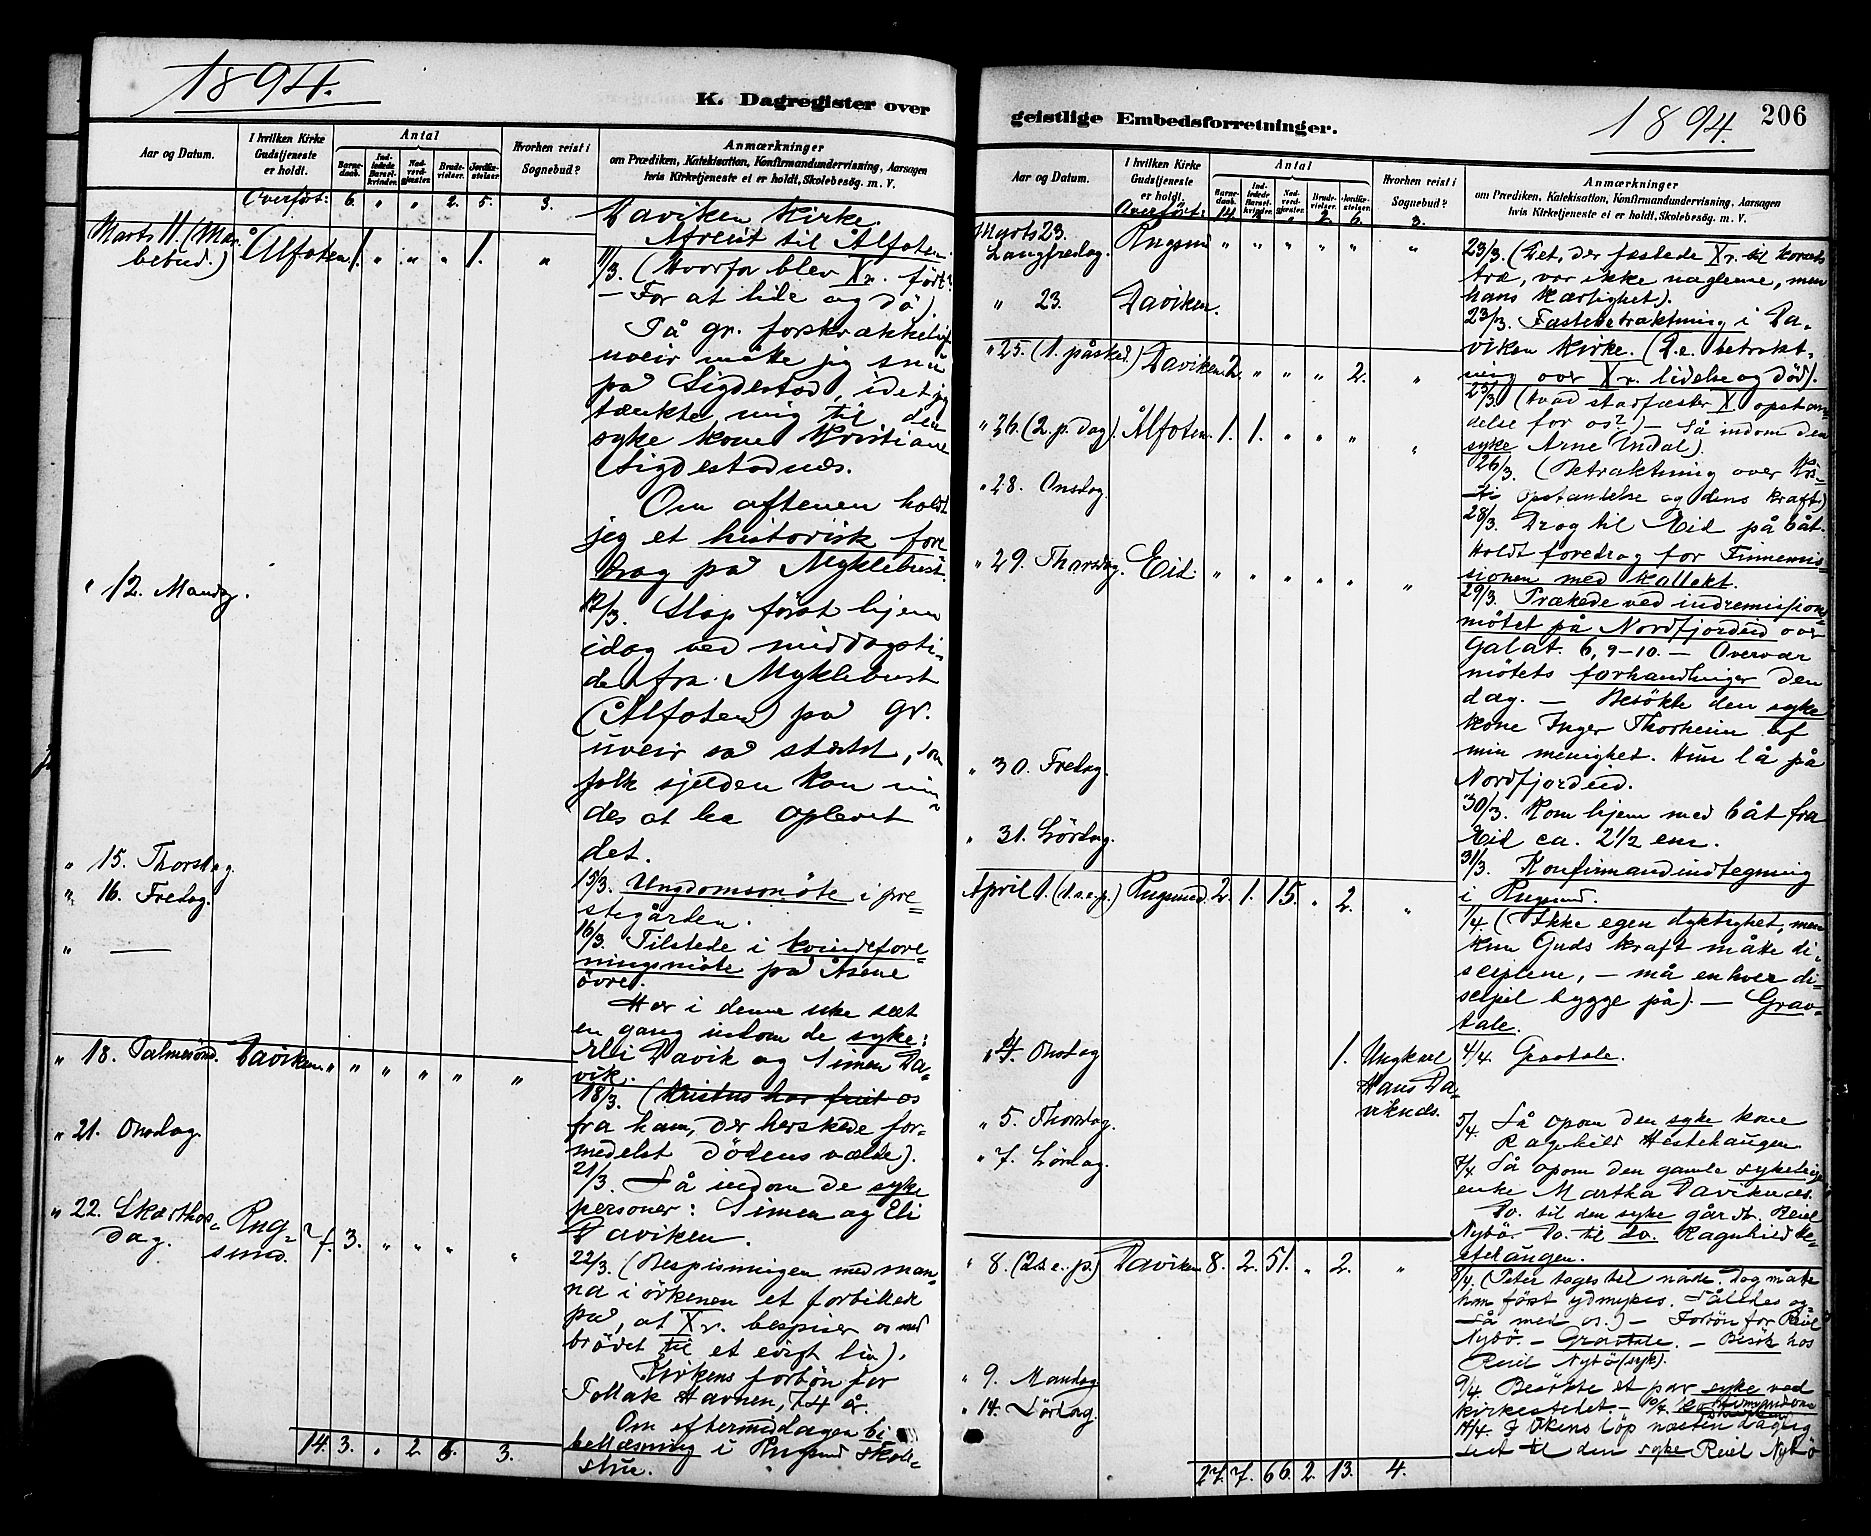 1894.
K. Dagregister over
Aar og Datum.
I hvilken Kirke Gudstjeneste er holdt.
Antal
Barne-daab.
Ind-ledede Barsel-kvinder.
Nad-verd-gjester.
Brude-vielser.
Jordfæ-stelser.
Hvorhen reist i Sognebud?
Anmærkninger
om Prædiken, Katekisation, Konfirmandundervisning, Aarsagen
hvis Kirketjeneste ei er holdt, Skolebesøg. m. V.
Overført: 6. " " 2. 5. 3.
Daviken Kirke.
Afreist til Ålfoten.
Marts 11. (Mar. Ålfoten. 1. " " " 1. "
bebud.)
11/3. (Hvorfor blev Xr. født?
— For at lide og dø).
På gr. forskrækkeligt
uveir måtte jeg snu
på Sigdestad, idet jeg
tænkte mig til den
syke kone Kristiane
Sigdestadnes.
Om aftenen holdt
jeg et historisk fore
drag på Myklebust.
" 12. Mandag.
12/3. Slap først hjem
idag ved middagsti-
de fra Myklebust
(Ålfoten) på gr.
uveir så stærkt, som
folk sjelden kan min-
des at ha oplevet
det.
" 15. Thorsdag
15/3. Ungdomsmøte i pre-
stegården.
" 16. Fredag.
16/3. Tilstede i kvindefore-
ningsmøte på Åsene
øvre.
" —
Har i denne uke seet
en gang indom de syke:
Eli Davik og Simen Da-
vik.
" 18. Palmesønd. Daviken " " " " " "
18/3. (Kristus har friet os
fra ham, der herskede for-
medelst dødens vælde).
" 21. Onsdag.
21/3. Så indom de syke
personer: Simen og Eli
Daviken.
" 22. Skærthors- Rug- 7. 3. " " " "
dag. sund.
22/3. (Bespisningen med man-
na i ørkenen et forbillede
på, at Xr. bespiser os med
brødet til et evigt liv).
Kirkens forbøn for
Tollak Havnen, 74 år.
Om eftermiddagen bi-
bellæsning i Rugsund skole-
stue.
14. 3. " 2. 6. 3.
geistlige Embedsforretninger.
1894.
206
Aar og Datum.
I hvilken Kirke Gudstjeneste er holdt.
Antal
Barne-daab.
Ind-ledede Barsel-kvinder.
Nad-verd-gjester.
Brude-vielser.
Jordfæ-stelser.
Hvorhen reist i Sognebud?
Anmærkninger
om Prædiken, Katekisation, Konfirmandundervisning, Aarsagen
hvis Kirketjeneste ei er holdt, Skolebesøg. m. V.
Overført: 14. 3. " 2. 6. 3.
Marts 23. Rugsund " " " " " "
Langfredag.
23/3. (Det, der fæstede Xr. til korsets
træ, var ikke naglerne, men
hans kærlighet).
" 23. Daviken.
23/3. Fastebetraktning i Da-
viken kirke. (D. e. betrakt-
ning over Xr. lidelse og død).
" 25. (1. påsked.) Daviken. 2. " " " 2. "
25/3. (Hvad stadfæster X. opstan-
delse for os?) — Så indom den
syke Arne Indal).
" 26. (2. p. dag). Ålfoten. 1. 1. " " " "
26/3. (Betraktning over Kri-
sti opstandelse og dens kraft)
" 28. Onsdag.
28/3. Drog til Eid på båt.
Holdt foredrag for Finnemis-
sionen med kollekt.
" 29. Thorsdag. Eid. " " " " " "
29/3. Prækede ved indremissions-
møtet på Nordfjordeid over
Galat. 6, 9-10. — Overvar
møtets forhandlinger den
dag. — Besøkte den syke
kone Inger Thorheim af
min menighet. Hun lå på
Nordfjordeid.
" 30. Fredag.
30/3. Kom hjem med båt fra
Eid ca. 2 1/2 em.
" 31. Lørdag.
31/3. Konfirmandindtegning
i Rugsund.
April 1. (1. s. e. p.) Rugsund. 2. 1. 15. " 2. "
1/4. (Ikke egen dyktighet, men
kun Guds kraft måtte di-
sciplene, — må enhver di-
scipel bygge på) — Grav-
tale.
" 4. Onsdag 1. Ungkarl
Hans Da-
viknes.
4/4. Gravtale.
" 5. Thorsdag.
5/4. Så opom den syke kone
Ragnhild Hestehaugen
" 7. Lørdag.
7/4. Så opom den gamle sykelige
enke Martha Daviknes.
Do. til den syke gård. Reiel
Nybø. Do. til do. Ragnhild He-
stehaugen.
" 8. (2. s. e. p.) Daviken 8. 2. 51. " 2. "
8/4. (Peter tages til nåde. Dog måtte
han først ydmykes. Således og-
så med os.) — Forbøn for Reiel
Nybø. — Gravtale. — Besøk hos
Reiel Nybø (syk).
" 9. Mandag
9/4. Besøkte et par syke ved
kirkestedet. —
" 14. Lørdag.
14/4. I ukens løp næsten daglig
seet til den syke Reiel Nybø
27. 7. 66. 2. 13. 4.